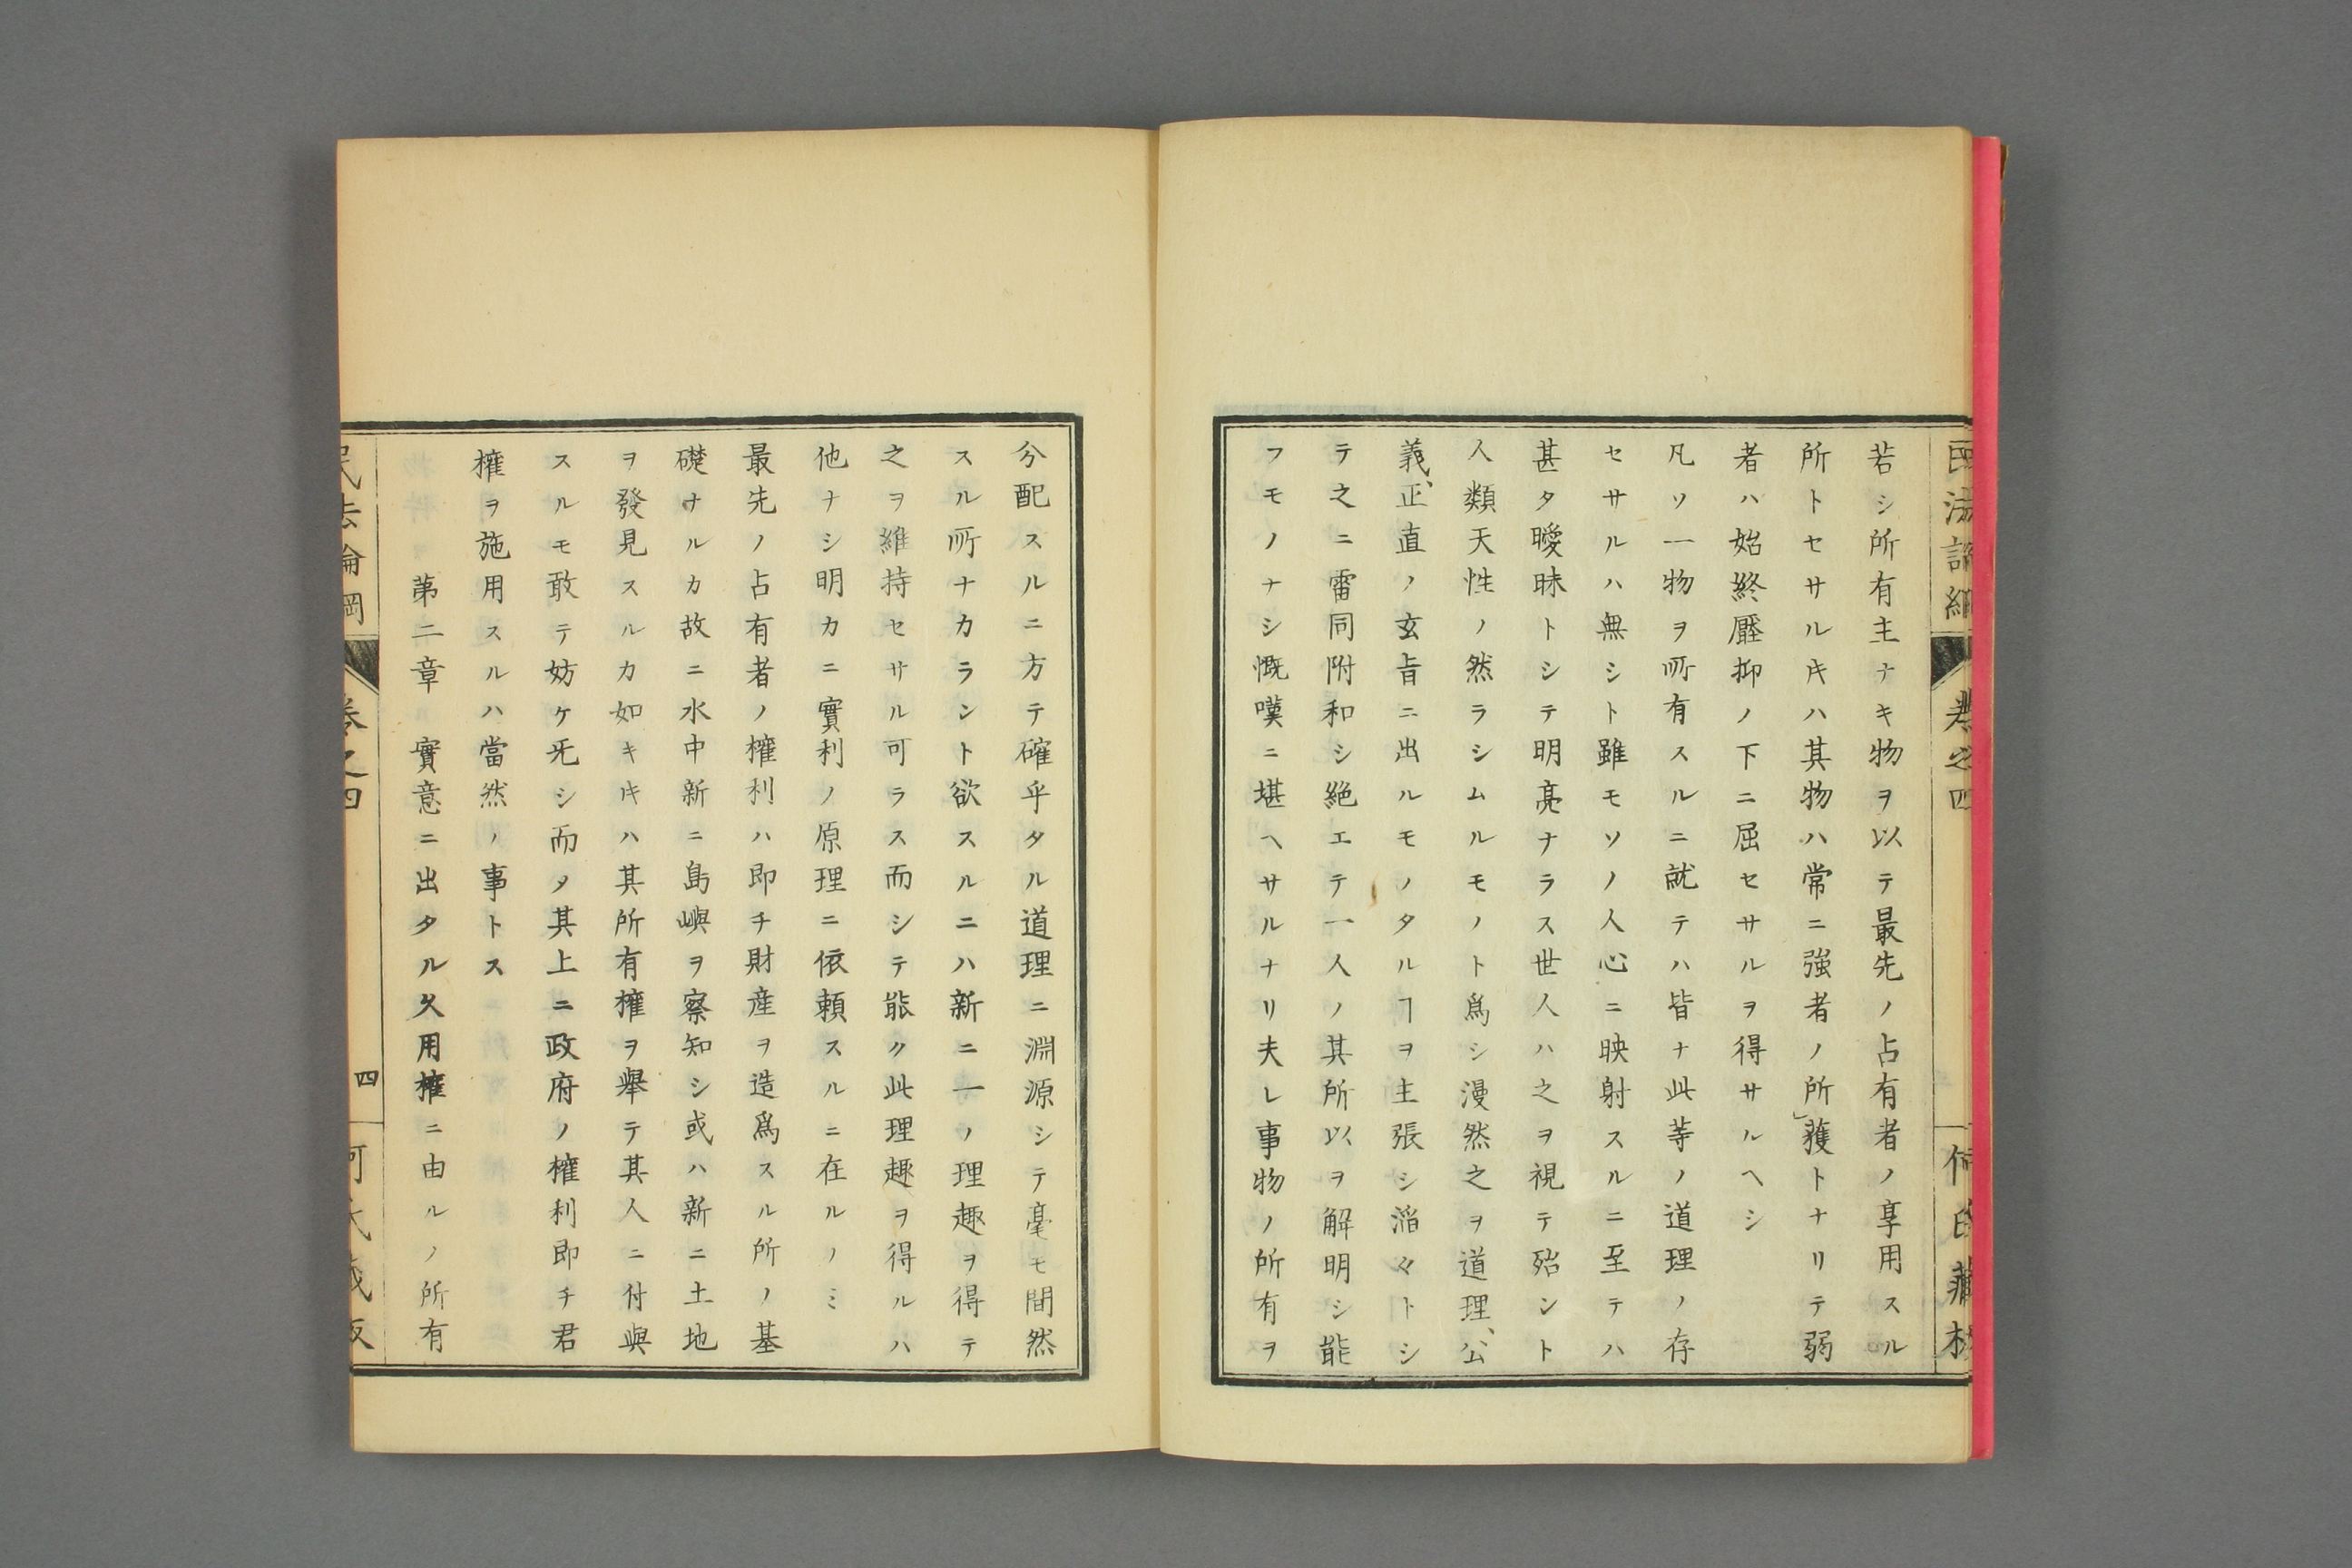 若シ所有主ナキ物ヲ以テ最先ノ占有者ノ享用スル
所トセサルキハ其物ハ常ニ強者ノ所獲トナリテ弱
者ハ始終壓抑ノ下ニ屈セサルヲ得サルヘシ
凡ソ一物ヲ所有スルニ就テハ皆ナ此等ノ道理ノ存
セサルハ無シト雖モソノ人心ニ映射スルニ至テハ
甚タ曖昧トシテ明亮ナラス世人ハ之ヲ視テ殆ント
人類天性ノ然ラシムルモノト爲シ漫然之ヲ道理、公
義、正直ノ玄旨ニ出ルモノタルヿヲ主張シ滔々トシ
テ之ニ雷同附和シ絶エテ一人ノ其所以ヲ解明シ能
フモノナシ慨嘆ニ堪ヘサルナリ夫レ事物ノ所有ヲ
分配スルニ方テ確乎タル道理ニ淵源シテ毫モ間然
スル所ナカラント欲スルニハ新ニ一ノ理趣ヲ得テ
之ヲ維持セサル可ラス而シテ能ク此理趣ヲ得ルハ
他ナシ明カニ實利ノ原理ニ依頼スルニ在ルノミ
最先ノ占有者ノ權利ハ即チ財産ヲ造爲スル所ノ基
礎ナルカ故ニ水中新ニ島嶼ヲ察知シ或ハ新ニ土地
ヲ發見スルカ如キキハ其所有權ヲ擧テ其人ニ付與
スルモ敢テ妨ケ旡シ而メ其上ニ政府ノ權利即チ君
權ヲ施用スルハ當然ノ事トス
第二章 實意ニ出タル久用權ニ由ルノ所有
民法論綱 卷之四 四 何氏藏版